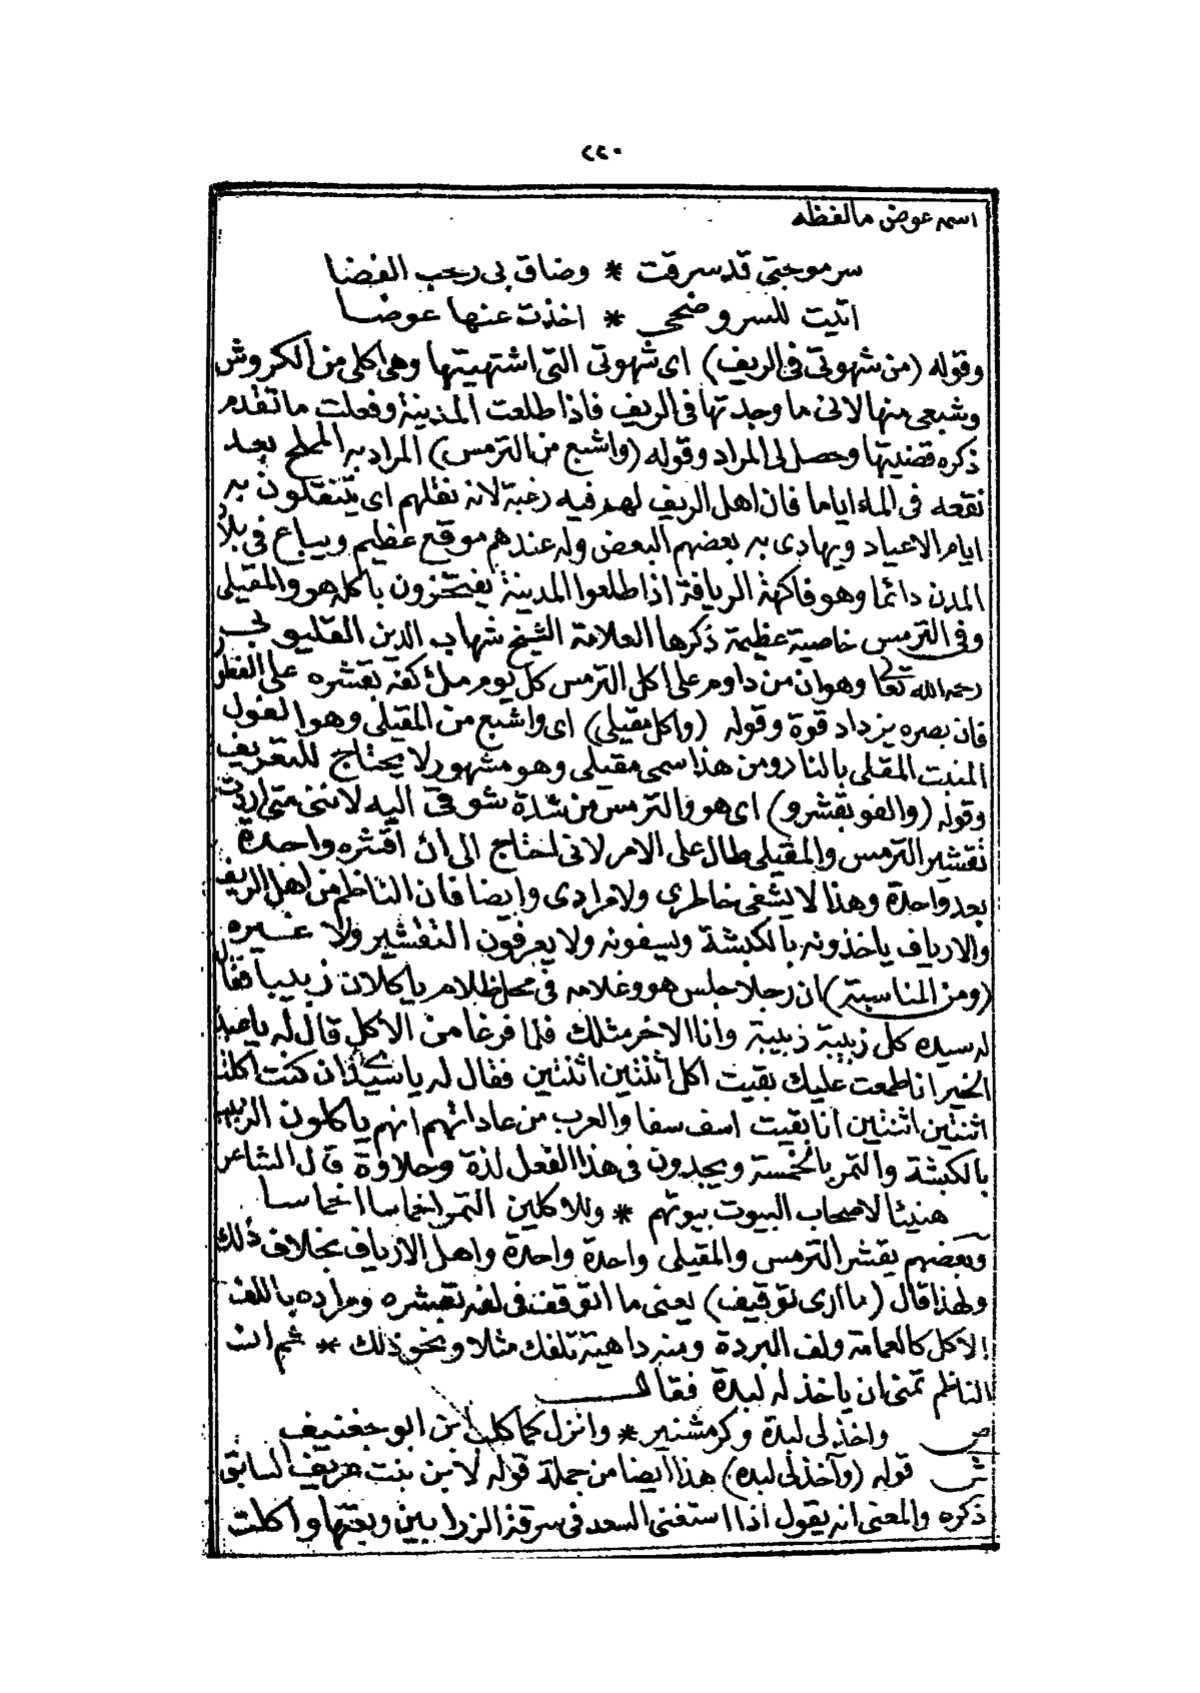 ٢٢٠
اسمه عوض مالفظه
سرموجتى قد سرقت * وضاق بى رحب الفضا
اتيت للسروضحى * اخذت عنها عوضا
وقوله (من شهوتى فى الريف) اى شهوتى التى اشتهيتها وهى اكلى من الكروش
وشبعى منها لانى ما وجدتها فى الريف فاذا طلعت المدينة وفعلت ما تقدم
ذكره قضيتها وحصل لى المراد وقوله (واشبع من الترمس) المراد به المملح بعد
نقعه فى الماء اياما فان اهل الريف لهم فيه رغبة لانه نقلهم اى يتنقلون به
ايام الاعياد ويهادى به بعضهم البعض وله عندهم موقع عظيم ويباع فى بلاد
المدن دائما وهو فاكهة الريافة اذا طلعوا المدينة يفتخرون باكله هو والمقيلى
وفى الترمس خاصية عظيمة ذكرها العلامة الشيخ شهاب الدين القليوبى
رحمه الله تعالى وهو ان من داوم على اكل الترمس كل يوم ملئ كفه بقشره على الفطور
فان بصره يزداد قوة وقوله (واكل مقيلى) اى واشبع من المقيلى وهو الفول
المنبت المقلى بالنار ومن هذا سمى مقيلى وهو مشهور لا يحتاج للتعريف
وقوله (والفو بقشرو) اى هو والترمس من شدة شوقى اليه لاننى متى اردت
تقشير الترمس والمقيلى طال على الامر لانى احتاج الى ان اقشره واحدة
بعد واحدة وهذا لا يشفى خاطرى ولا مرادى وايضا فان الناظم من اهل الريف
والارياف ياخذونه بالكبشة ويسفونه ولا يعرفون التقشير ولا غيره
(ومن المناسبة) ان رجلا جلس هو وغلامه فى محل ظلام ياكلان زبيبا فقال
له سيده كل زبيبة زبيبة وانا الاخر مثلك فلما فرغا من الاكل قال له ياعبد
الخير انا طمعت عليك بقيت اكل اثنتين اثنتين فقال له ياسيدى ان كنت اكلت
اثنتين اثنتين انا بقيت اسف سفا والعرب من عاداتهم انهم ياكلون الزبيب
بالكبشة والتمر بالخمسة ويجدون فى هذا الفعل لذة وحلاوة قال الشاعر
هنيئا لاصحاب البيوت بيوتهم * وللاكلين التمر اخماسا اخماسا
وبعضهم يقشر الترمس والمقيلى واحدة واحدة واهل الارياف بخلاف ذلك
ولهذا قال (ما ارى توقيف) يعنى ما اتوقف فى لفه بقشره ومراده باللف
الاكل كالعمامة ولف البردة ومنه داهية تلفك مثلا ونحو ذلك * ثم ان
الناظم تمنى ان ياخذ له لبدة فقال
ص واخذ لى لبدة وكرمشنير * وانزل كما كلب ابن ابو جغنيف
ش قوله (وآخذ لى لبده) هذا ايضا من جملة قوله لابن بنت خريف السابق
ذكره والمعنى انه يقول اذا استغنى السعد فى سرقة الزرابين وبعتها واكلت